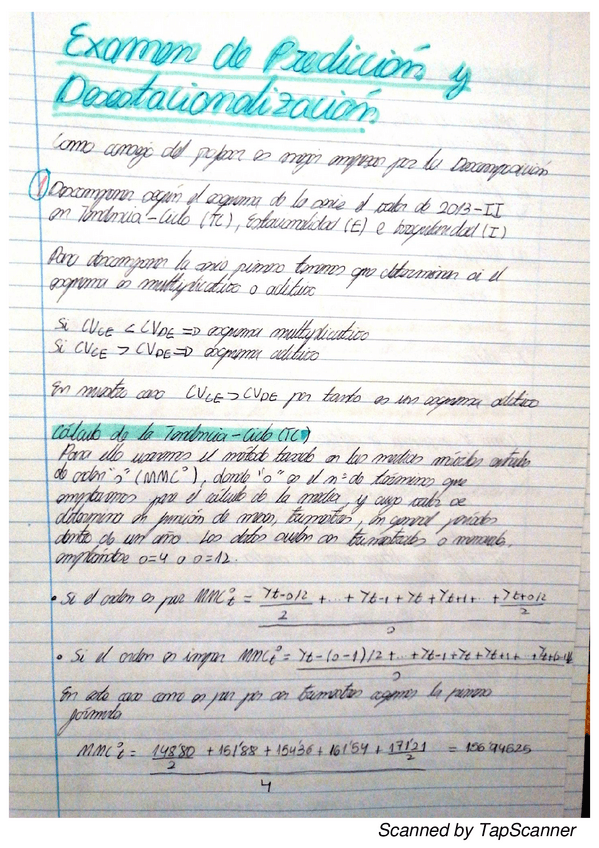 Examen de Predicción y
Desestacionalización
Como consejo del profesor es mejor empezar por la Descomposición
1) Descomponer según el esquema de la serie el valor de 2013-II
en Tendencia-Ciclo (TC), Estacionalidad (E) e Irregularidad (I)
Para descomponer la serie primero tenemos que determinar si el
esquema es multiplicativo o aditivo
Si CVCE < CVDE => esquema multiplicativo
Si CVCE > CVDE => esquema aditivo
En nuestro caso CVCE > CVDE por tanto es un esquema aditivo
Cálculo de la Tendencia-Ciclo (TC)
Para ello usaremos el método basado en las medias móviles
de orden "o" (MMCº), donde "o" es el nº de términos que
empleamos para el cálculo de la media, y cuyo valor se
determina en función de meses, trimestres, en general periodos
dentro de un año. Los datos suelen ser trimestrales o mensuales,
empleándose o=4 o o=12.
• Si el orden es par MMCºt = Yt-o/2 / 2 + ... + Yt-1 + Yt + Yt+1 ... + Yt+o/2 / 2
o
• Si el orden es impar MMCºt = Yt-(o-1)/2 + ... + Yt-1 + Yt + Yt+1 +
o
En este caso como es par por ser trimestres cogemos la primera
fórmula
MMCºt = 148'80 / 2 + 151'88 + 154'36 + 161'54 + 171'21 / 2 = 156'94625
4
Scanned by TapScanner